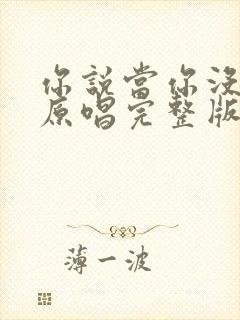 你說當你沒
原唱完整版
薄一波